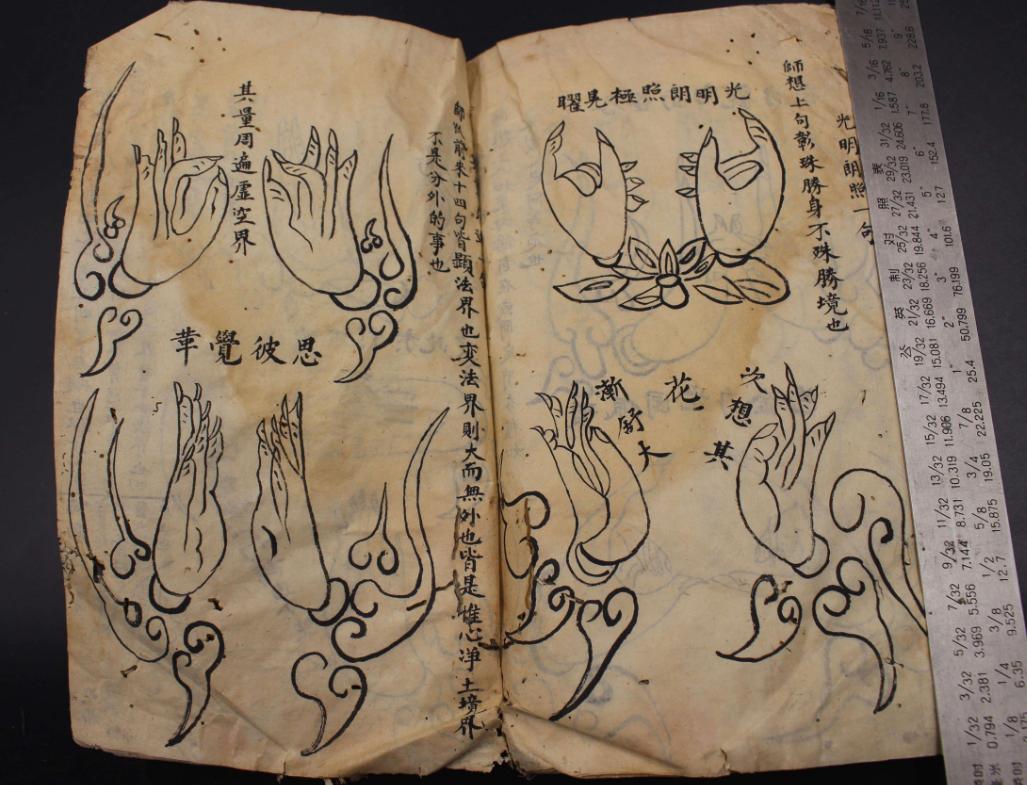 光明朗照一句
師想上句彰珠勝身不殊勝境也
光明朗照極晃曜
次想其
花
漸大
師前來十四句皆顯法界也変法界則大而無外也皆是惟心淨土境界
不是分外的事也
其量周遍虛空界
思彼覺華
公英制对照表
1/32 3/32 5/32 7/32 9/32 11/32 13/32 15/32 17/32 19/32 21/32 23/32 25/32 27/32 29/32 31/32 1/16 3/16 5/16 7/16
毫米 0.794 2.381 3.969 5.556 7.144 8.731 10.319 11.906 13.494 15.081 16.669 18.256 19.844 21.431 23.019 24.606 1.587 4.762 7.937
1/8 1/4 3/8 1/2 5/8 3/4 7/8 1" 2" 3" 4" 5" 6" 7" 8" 9"
6.35 9.525 12.7 15.875 19.05 22.225 25.4 50.799 76.199 101.6 127 152.4 177.8 203.2 228.6